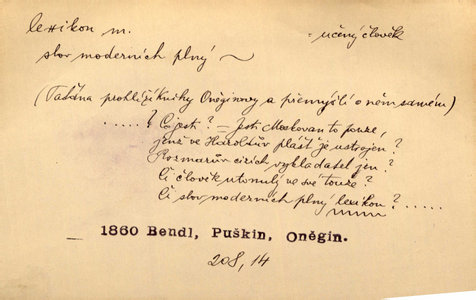 lexikon m. = učený člověk
slov moderních plný ~
(Taťána prohlíží knížky Oněginovy a přemýšlí o něm samém)
.....? Či jest? – Jest Moskovan to pouze,
jenž ve Haroldův plášť je ustrojen?
Rozmarův cizích vykladatel jen?
Či člověk utonulý ve své touze?
Či slov moderních plný lexikon?.....
1860 Bendl, Puškin, Oněgin.
208, 14